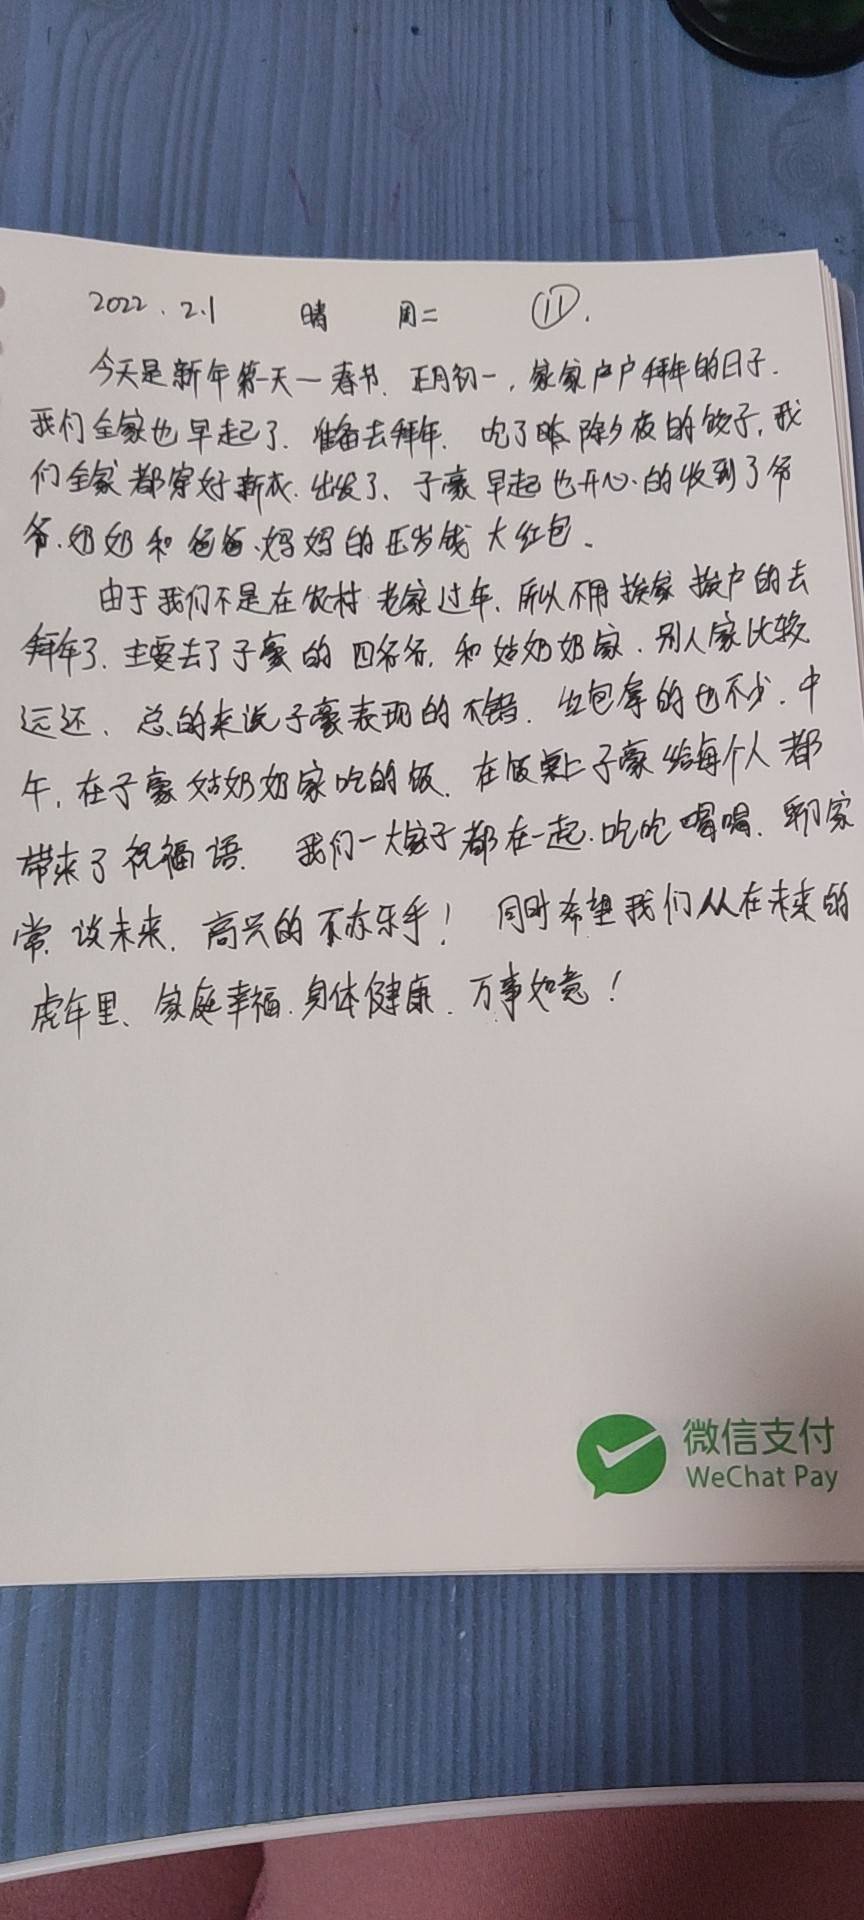 2022.2.1 晴 周二 ⑪.
今天是新年第一天一春节、正月初一，家家户户拜年的日子.
我们全家也早起了、准备去拜年、吃了除夕夜的饺子，我
们全家都穿好新衣.出发了、子豪早起也开心的收到了爷
爷、奶奶和爸爸、妈妈的压岁钱大红包。
由于我们不是在农村老家过年、所以不用挨家挨户的去
拜年了、主要去了子豪的四爷爷，和姑奶奶家、别人家比较
远还、总的来说子豪表现的不错、红包拿的也不少.中
午，在子豪姑奶奶家吃的饭、在饭桌上子豪给每个人都
带来了祝福语、我们一大家子都在一起.吃吃喝喝、聊家
常、谈未来、高兴的不亦乐乎！同时希望我们从在未来的
虎年里、家庭幸福.身体健康、万事如意！
微信支付
WeChat Pay